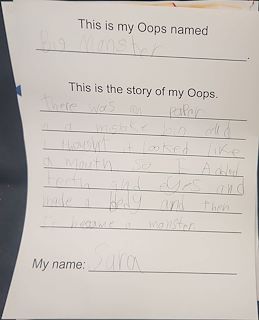 This is my Oops named
Big Monster.
This is the story of my Oops.
there was on paper
a a mistke bin and
I thought it looked like
a mouth so I Added
teeth and eyes and
made a body and then
it became a monster
My name: Sara